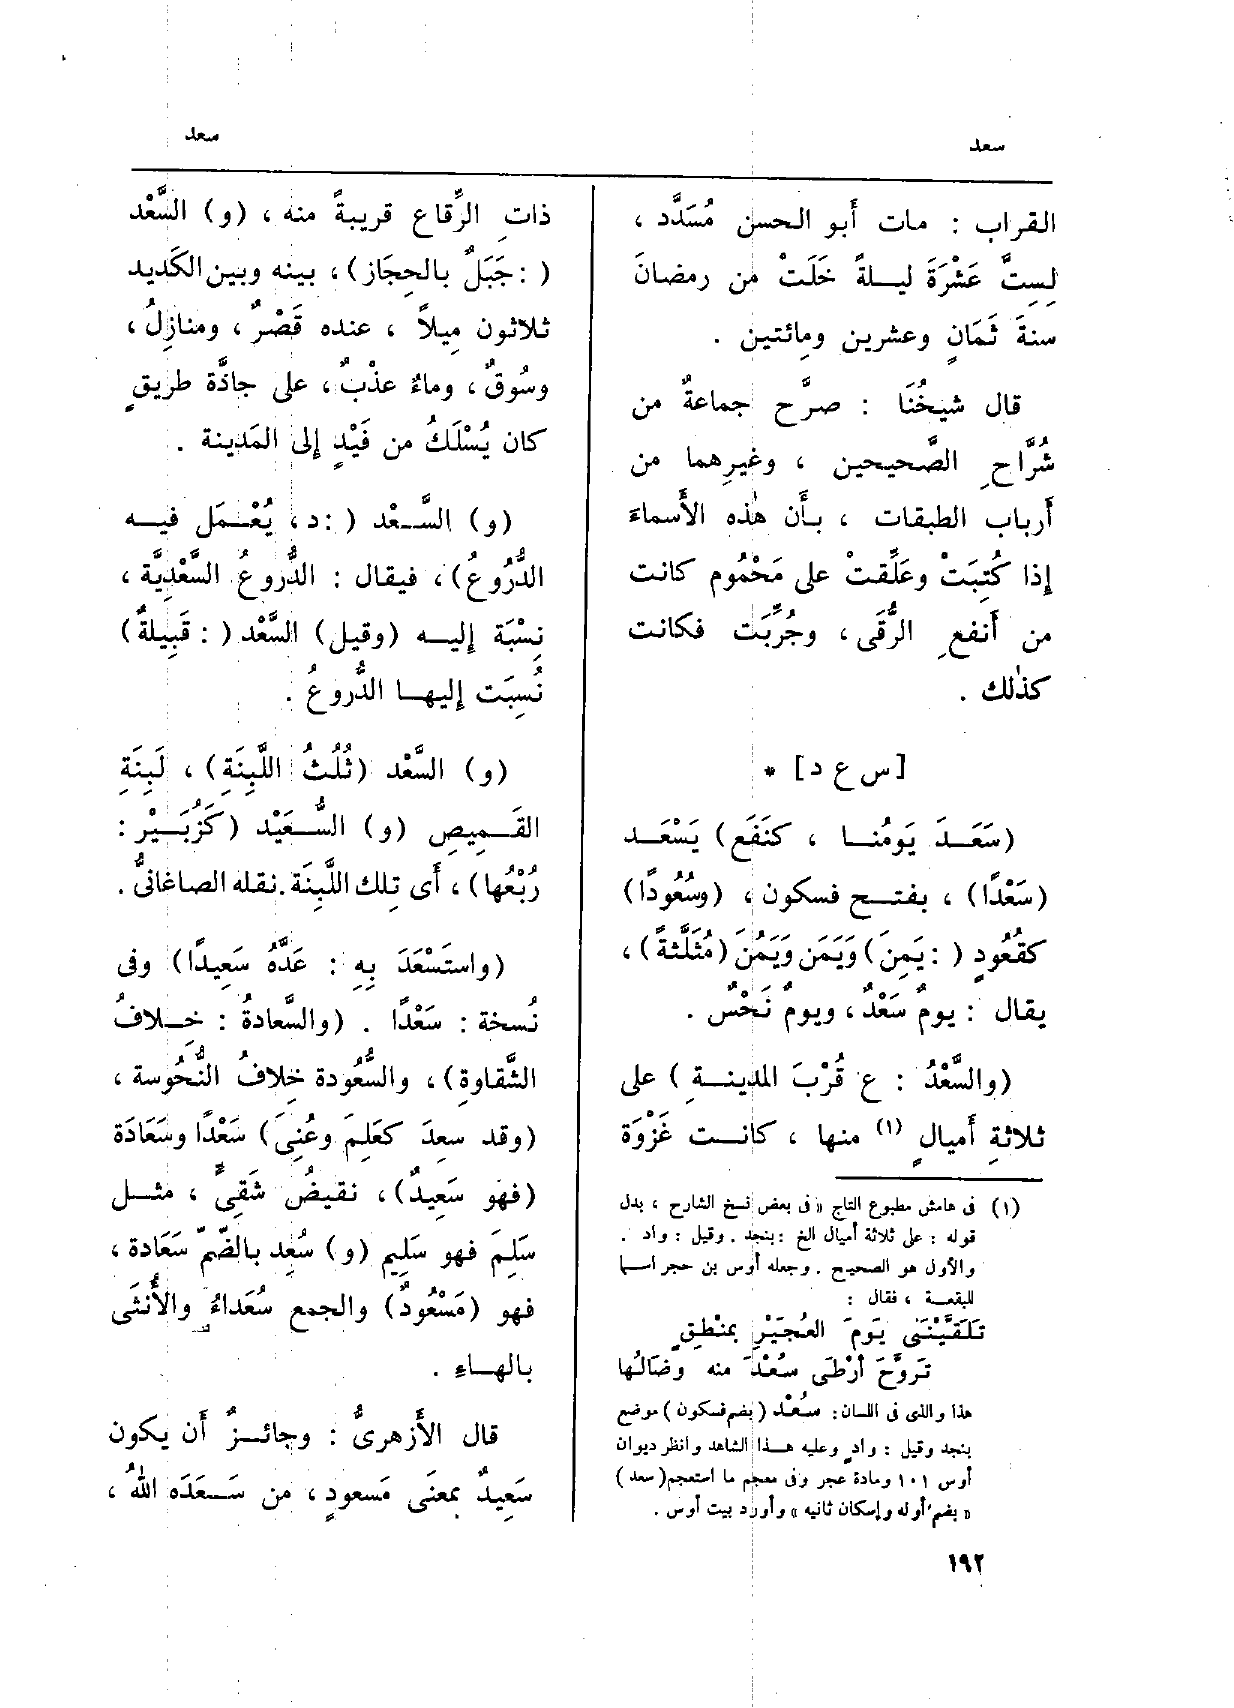 سعد
سعد
القراب : مات أَبو الحسن مُسَدَّد ،
لِستَّ عَشْرَةَ ليلةً خَلَتْ من رمضانَ
سنةَ ثَمَانٍ وعشرين ومِائتين .
قال شيخُنَا : صرَّح جماعةٌ من
شُرَّاحِ الصَّحيحين ، وغيرِهما من
أَرباب الطبقات ، بأَن هٰذه الأَسماءَ
إِذا كُتِبَتْ وعَلِّقتْ على مَحْمُوم كانت
من أَنفعِ الرُّقَى ، وجُرِّبَت فكانت
كذٰلك .
[س ع د] *
(سَعَدَ يَومُنا ، كنَفَع) يَسْعَد
(سَعْدًا) ، بفتح فسكون ، (وسُعُودًا)
كقُعُودٍ (: يَمِنَ) وَيَمَن وَيَمُنَ (مُثَلَّثةً) ،
يقال : يومٌ سَعْدٌ ، ويومٌ نَحْسٌ .
(والسَّعْدُ : ع قُرْبَ المدينة) على
ثلاثةِ أَميالٍ (١) منها ، كانت غَزْوَة
(١) فى هامش مطبوع التاج « فى بعض نسخ الشارح ، بدل
قوله : على ثلاثة أميال الخ : بنجد . وقيل : واد .
والأول هو الصحيح . وجعله أوس بن حجر اسما
للبقعة ، فقال :
تَلَقَّيْنَنى يَومَ العُجَيْرِ بمنْطِقٍ
تَروَّحَ أَرْطَى سُعْدَ منه وضَالُها
هذا والذى فى اللسان : سُعْد (بضم فسكون) موضع
بنجد وقيل : وادٍ وعليه هذا الشاهد وانظر ديوان
أوس ١٠١ ومادة عجر وفى معجم ما استعجم (سعد)
« بضم أوله وإسكان ثانيه » وأورد بيت أوس .
ذات الرِّقاع قريبةً منه ، (و) السَّعْد
(: جَبَلٌ بالحِجَاز) ، بينه وبين الكَدِيد
ثلاثون مِيلاً ، عنده قَصْرٌ ، ومنازِلُ ،
وسُوقٌ ، وماءٌ عذْبٌ ، على جادَّة طريقٍ
كان يُسْلَكُ من فَيْدٍ إِلى المَدِينة .
(و) السَّعْد (: د ، يُعْمَل فيه
الدُّرُوعُ) ، فيقال : الدُّروعُ السَّعْدِيَّة ،
نِسْبَة إِليه (وقيل) السَّعْد (: قَبِيلةٌ)
نُسِبَت إِليها الدُّروعُ .
(و) السَّعْد (ثُلُثُ اللَّبِنَةِ) ، لَبِنَةِ
القَمِيصِ (و) السُّعَيْد (كَزُبَيْر :
رُبْعُها) ، أَى تلك اللَّبِنَة . نقله الصاغانىُّ .
(واستَسْعَدَ بِهِ : عَدَّهُ سَعِيدًا) وفى
نُسخة : سَعْدًا . (والسَّعادةُ : خِلافُ
الشَّقاوة) ، والسُّعُودة خِلافُ النُّحُوسة ،
(وقد سعِدَ كعَلِمَ وعُنِىَ) سَعْدًا وسَعَادَة
(فهو سَعِيدٌ) ، نقيضُ شَقِىٌّ ، مثل
سَلِمَ فهو سَلِيم (و) سُعِد بالضّمّ سَعَادة ،
فهو (مَسْعُودٌ) والجمع سُعَداءُ والأُنثَى
بالهاءِ .
قال الأَزهرىُّ : وجائزٌ أَن يكون
سَعِيدٌ بمعنَى مَسعودٍ ، من سَعَدَه اللهُ ،
١٩٢